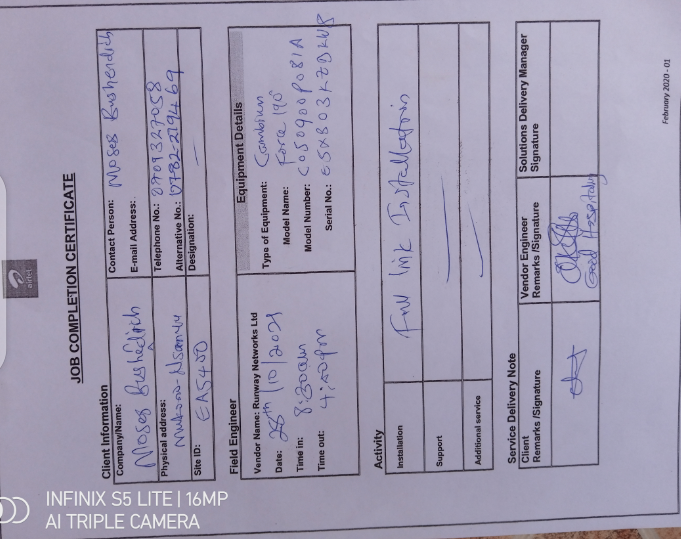 airtel
JOB COMPLETION CERTIFICATE
Client Information
Company/Name:
Moses Bushendich
Physical address:
Mukono-Nsanvu
Site ID: EA5400
Contact Person: Moses Bushendich
E-mail Address:
Telephone No.: 0709327058
Alternative No.: 0782219469
Designation: —
Field Engineer
Vendor Name: Runway Networks Ltd
Date: 25th/10/2021
Time in: 8:30am
Time out: 4:50pm
Equipment Details
Type of Equipment: Cambium
Model Name: Force 190
Model Number: C050900P081A
Serial No.:
Activity
Installation Full link Installation
Support —
Additional service —
Service Delivery Note
Client
Remarks /Signature
Vendor Engineer
Remarks /Signature
Good Hospitality
Solutions Delivery Manager
Signature
February 2020 - 01
INFINIX S5 LITE | 16MP
AI TRIPLE CAMERA